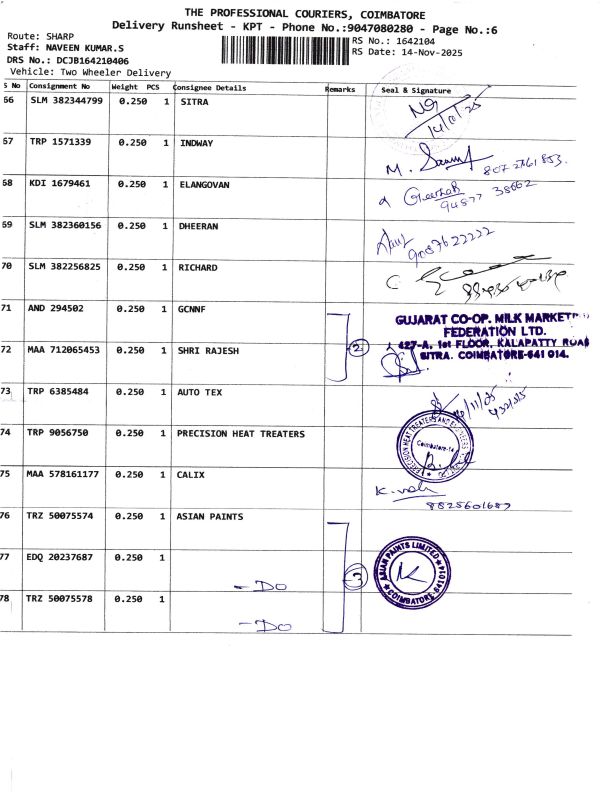 THE PROFESSIONAL COURIERS, COIMBATORE
Delivery Runsheet - KPT - Phone No.:9047080280 - Page No.:6
Route: SHARP
RS No.: 1642104
Staff: NAVEEN KUMAR.S
RS Date: 14-Nov-2025
DRS No.: DCJB164210406
Vehicle: Two Wheeler Delivery
S No Consignment No Weight PCS Consignee Details Remarks Seal & Signature
66 SLM 382344799 0.250 1 SITRA
67 TRP 1571339 0.250 1 INDWAY
M.
68 KDI 1679461 0.250 1 ELANGOVAN
94877 38662
69 SLM 382360156 0.250 1 DHEERAN
9087622222
70 SLM 382256825 0.250 1 RICHARD
71 AND 294502 0.250 1 GCNNF
GUJARAT CO-OP. MILK MARKET
FEDERATION LTD.
72 MAA 712065453 0.250 1 SHRI RAJESH 2
427-A, 1st FLOOR, KALAPATTY ROAD
SITRA. COIMBATORE-641 014.
73 TRP 6385484 0.250 1 AUTO TEX
74 TRP 9056750 0.250 1 PRECISION HEAT TREATERS
PRECISION HEAT TREATERS AND ENGINEERS
Coimbatore-14
75 MAA 578161177 0.250 1 CALIX
8825601687
76 TRZ 50075574 0.250 1 ASIAN PAINTS
77 EDQ 20237687 0.250 1
- DO 3
ASIAN PAINTS LIMITED
COIMBATORE-641014
K
78 TRZ 50075578 0.250 1
- DO